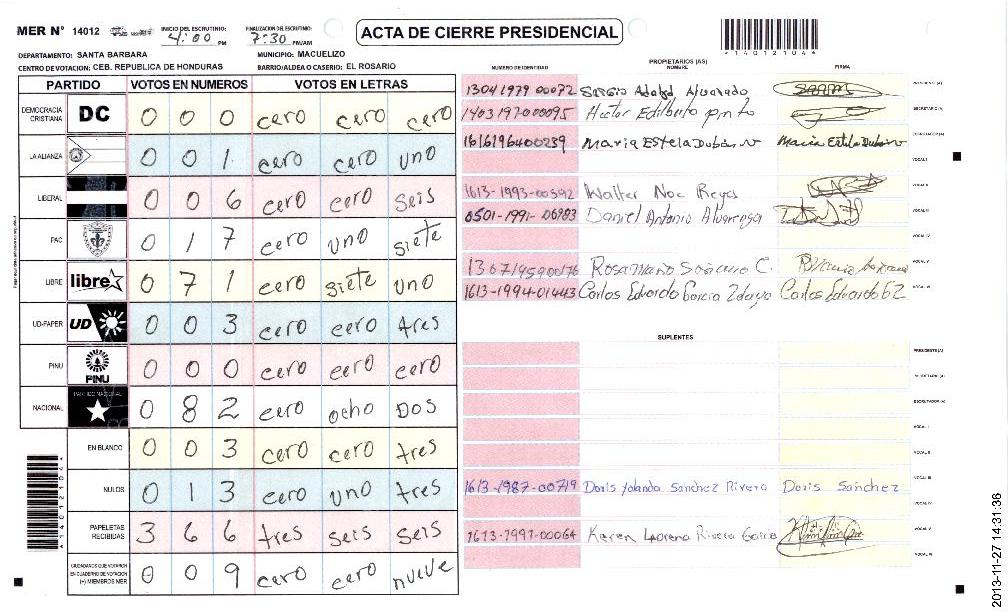 MER N° 14012 INICIO DEL ESCRUTINIO: 4:00 PM FINALIZACION DEL ESCRUTINIO: 7:30 PM/AM
ACTA DE CIERRE PRESIDENCIAL
*14012104*
DEPARTAMENTO: SANTA BARBARA MUNICIPIO: MACUELIZO
CENTRO DE VOTACION: CEB. REPUBLICA DE HONDURAS BARRIO/ALDEA O CASERIO: EL ROSARIO
PARTIDO VOTOS EN NUMEROS VOTOS EN LETRAS
DEMOCRACIA CRISTIANA DC 0 0 0 cero cero cero
LA ALIANZA 0 0 1 cero cero uno
LIBERAL 0 0 6 cero cero seis
PAC 0 1 7 cero uno siete
LIBRE libre 0 7 1 cero siete uno
UD-FAPER UD 0 0 3 cero cero tres
PINU PINU 0 0 0 cero cero cero
NACIONAL PARTIDO NACIONAL 0 8 2 cero ocho Dos
EN BLANCO 0 0 3 cero cero tres
NULOS 0 1 3 cero uno tres
PAPELETAS RECIBIDAS 3 6 6 tres seis seis
CIUDADANOS QUE VOTARON EN CUADERNO DE VOTACION (+) MIEMBROS MER 0 0 9 cero cero nueve
*14012104*
PROPIETARIOS (AS)
NUMERO DE IDENTIDAD NOMBRE FIRMA
1304 1979 00072 Sergio Alvarado PRESIDENTE (A)
Hector Edilberto pinto SECRETARIO (A)
1616196400239 Maria Estela Maria Estela ESCRUTADOR (A)
VOCAL I
1613-1993-00592 Walter Noe Reyes VOCAL II
0501-1991-06983 Daniel Antonio Alvarenga VOCAL III
VOCAL IV
Rosa C. VOCAL V
1613-1994-01443 Carlos Eduardo Garcia Carlos Eduardo GZ VOCAL VI
SUPLENTES
PRESIDENTE (A)
SECRETARIO (A)
ESCRUTADOR (A)
VOCAL I
VOCAL II
1613-1987-00719 Doris Yolanda Sanchez Rivera Doris Sanchez VOCAL III
VOCAL IV
1613-1991-00064 Karen Lorena Rivera Garcia VOCAL V
VOCAL VI
2013-11-27 14:31:36